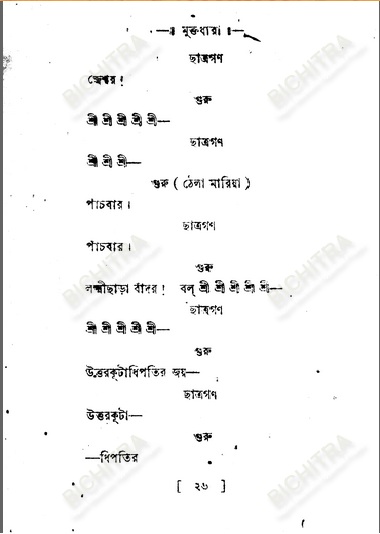 —॥ মুক্তধারা ॥—
ছাত্রগণ
জ্বেশ্বর !
গুরু
শ্রী শ্রী শ্রী শ্রী শ্রী—
ছাত্রগণ
শ্রী শ্রী শ্রী—
গুরু ( ঠেলা মারিয়া )
পাঁচবার ।
ছাত্রগণ
পাঁচবার ।
গুরু
লক্ষ্মীছাড়া বাঁদর ! বল্ শ্রী শ্রী শ্রী শ্রী শ্রী—
ছাত্রগণ
শ্রী শ্রী শ্রী শ্রী শ্রী—
গুরু
উত্তরকূটাধিপতির জয়—
ছাত্রগণ
উত্তরকূটা—
গুরু
—ধিপতির
[ ২৬ ]
BICHITRA
BICHITRA
BICHITRA
BICHITRA
BICHITRA
BICHITRA